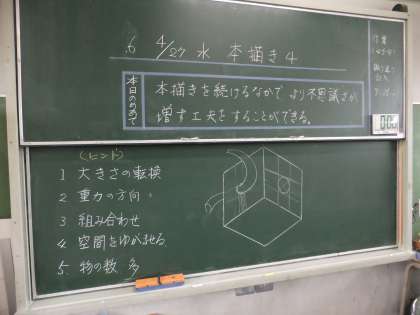 6 4/27 水 本描き4
本日のめあて
本描きを続けるなかで より不思議さが
増す工夫をすることができる。
作業
(ヒント)
1 大きさの転換
2 重力の方向
3 組み合わせ
4 空間をゆがませる
5 物の数 多